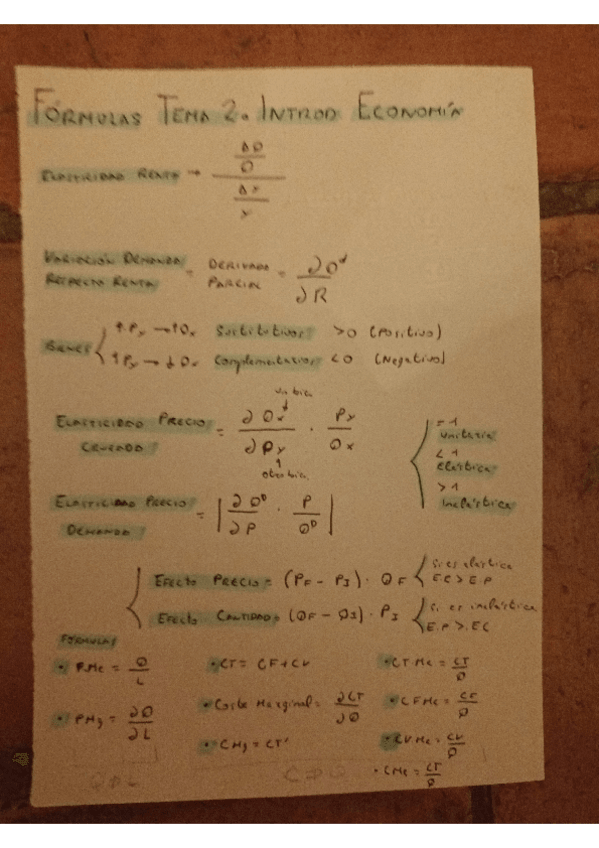 FÓRMULAS TEMA 2. INTROD ECONOMÍA
ELASTICIDAD RENTA → (ΔQ / Q) / (ΔY / Y)
VARIACIÓN DEMANDA RESPECTO RENTA = DERIVADA PARCIAL = ∂Q^d / ∂R
BIENES { ↑Py → ↑Qx Sustitutivos: >0 (Positivo)
↑Py → ↓Qx Complementarios <0 (Negativo)
un bien
ELASTICIDAD PRECIO CRUZADO = ∂Qx / ∂Py · Py / Qx
otro bien
= 1
Unitaria
< 1
Elástica
> 1
Inelástica
ELASTICIDAD PRECIO DEMANDA = | ∂Q^D / ∂P · P / Q^D |
EFECTO PRECIO = (PF - PI) · QF { Si es elástica E.C > E.P
EFECTO CANTIDAD = (QF - QI) · PI { Si es inelástica E.P > E.C
FÓRMULAS
• PMe = Q / L
• CT = CF + CV
• CTMe = CT / Q
• PMg = ∂Q / ∂L
• Coste Marginal = ∂CT / ∂Q
• CFMe = CF / Q
• CMg = CT'
• CVMe = CV / Q
• CMe = CT / Q